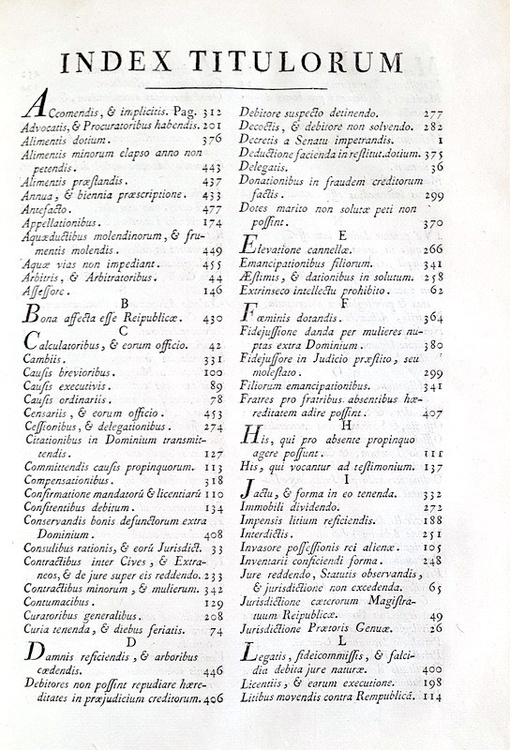 INDEX TITULORUM
ACcomendis, & implicitis. Pag. 312
Advocatis, & Procuratoribus habendis. 201
Alimentis dotium. 376
Alimentis minorum elapso anno non
petendis. 443
Alimentis præstandis. 437
Annua, & biennia præscriptione. 433
Antefacto. 477
Appellationibus. 174
Aquæductibus molendinorum, & fru-
mentis molendis. 449
Aquæ vias non impediant. 455
Arbitris, & Arbitratoribus. 44
Assessore. 146
B
Bona affecta esse Reipublicæ. 430
C
Calculatoribus, & eorum officio. 42
Cambiis. 331
Causis brevioribus. 100
Causis executivis. 89
Causis ordinariis. 78
Censariis, & eorum officio. 453
Cessionibus, & delegationibus. 274
Citationibus in Dominium transmit-
tendis. 127
Committendis causis propinquorum. 113
Compensationibus. 318
Confirmatione mandatorū & licentiarū 110
Confitentibus debitum. 134
Conservandis bonis defunctorum extra
Dominium. 408
Consulibus rationis, & eorū Jurisdict. 33
Contractibus inter Cives, & Extra-
neos, & de jure super eis reddendo. 233
Contractibus minorum, & mulierum. 342
Contumacibus. 129
Curatoribus generalibus. 208
Curia tenenda, & diebus feriatis. 74
D
Damnis reficiendis, & arboribus
cædendis. 446
Debitores non possint repudiare hære-
ditates in præjudicium creditorum. 406
Debitore suspecto detinendo. 277
Decoctis, & debitore non solvendo. 282
Decretis a Senatu impetrandis. 1
Deductione facienda in restitut. dotium. 375
Delegatis. 36
Donationibus in fraudem creditorum
factis. 299
Dotes marito non solutæ peti non
possint. 370
E
Elevatione cannellæ. 266
Emancipationibus filiorum. 341
Æstimis, & dationibus in solutum. 258
Extrinseco intellectu prohibito. 62
F
Fœminis dotandis. 364
Fidejussione danda per mulieres nu-
ptas extra Dominium. 380
Fidejussore in Judicio præstito, seu
molestato. 299
Filiorum emancipationibus. 341
Fratres pro fratribus absentibus hæ-
reditatem adire possint. 407
H
His, qui pro absente propinquo
agere possunt. 111
His, qui vocantur ad testimonium. 137
I
Jactu, & forma in eo tenenda. 332
Immobili dividendo. 272
Impensis litium reficiendis. 188
Interdictis. 251
Invasore possessionis rei alienæ. 105
Inventarii conficiendi forma. 248
Jure reddendo, Statutis observandis,
& jurisdictione non excedenda. 65
Jurisdictione cæterorum Magistra-
tuum Reipublicæ. 49
Jurisdictione Prætoris Genuæ. 26
L
Legatis, fideicommissis, & falci-
dia debita jure naturæ. 400
Licentiis, & earum executione. 198
Litibus movendis contra Rempublicā. 114